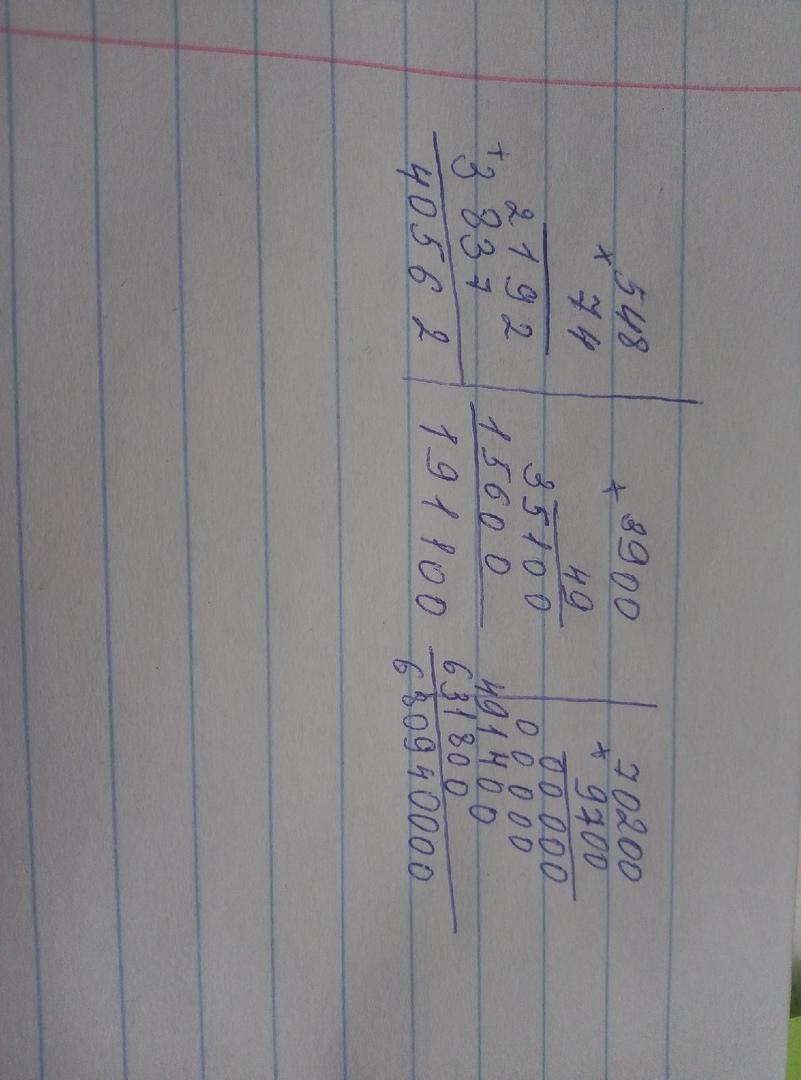 548
× 74
2192
+
3837
40562
× 3900
49
35100
15600
191100
70200
× 9700
00000
00000
491400
631800
680940000